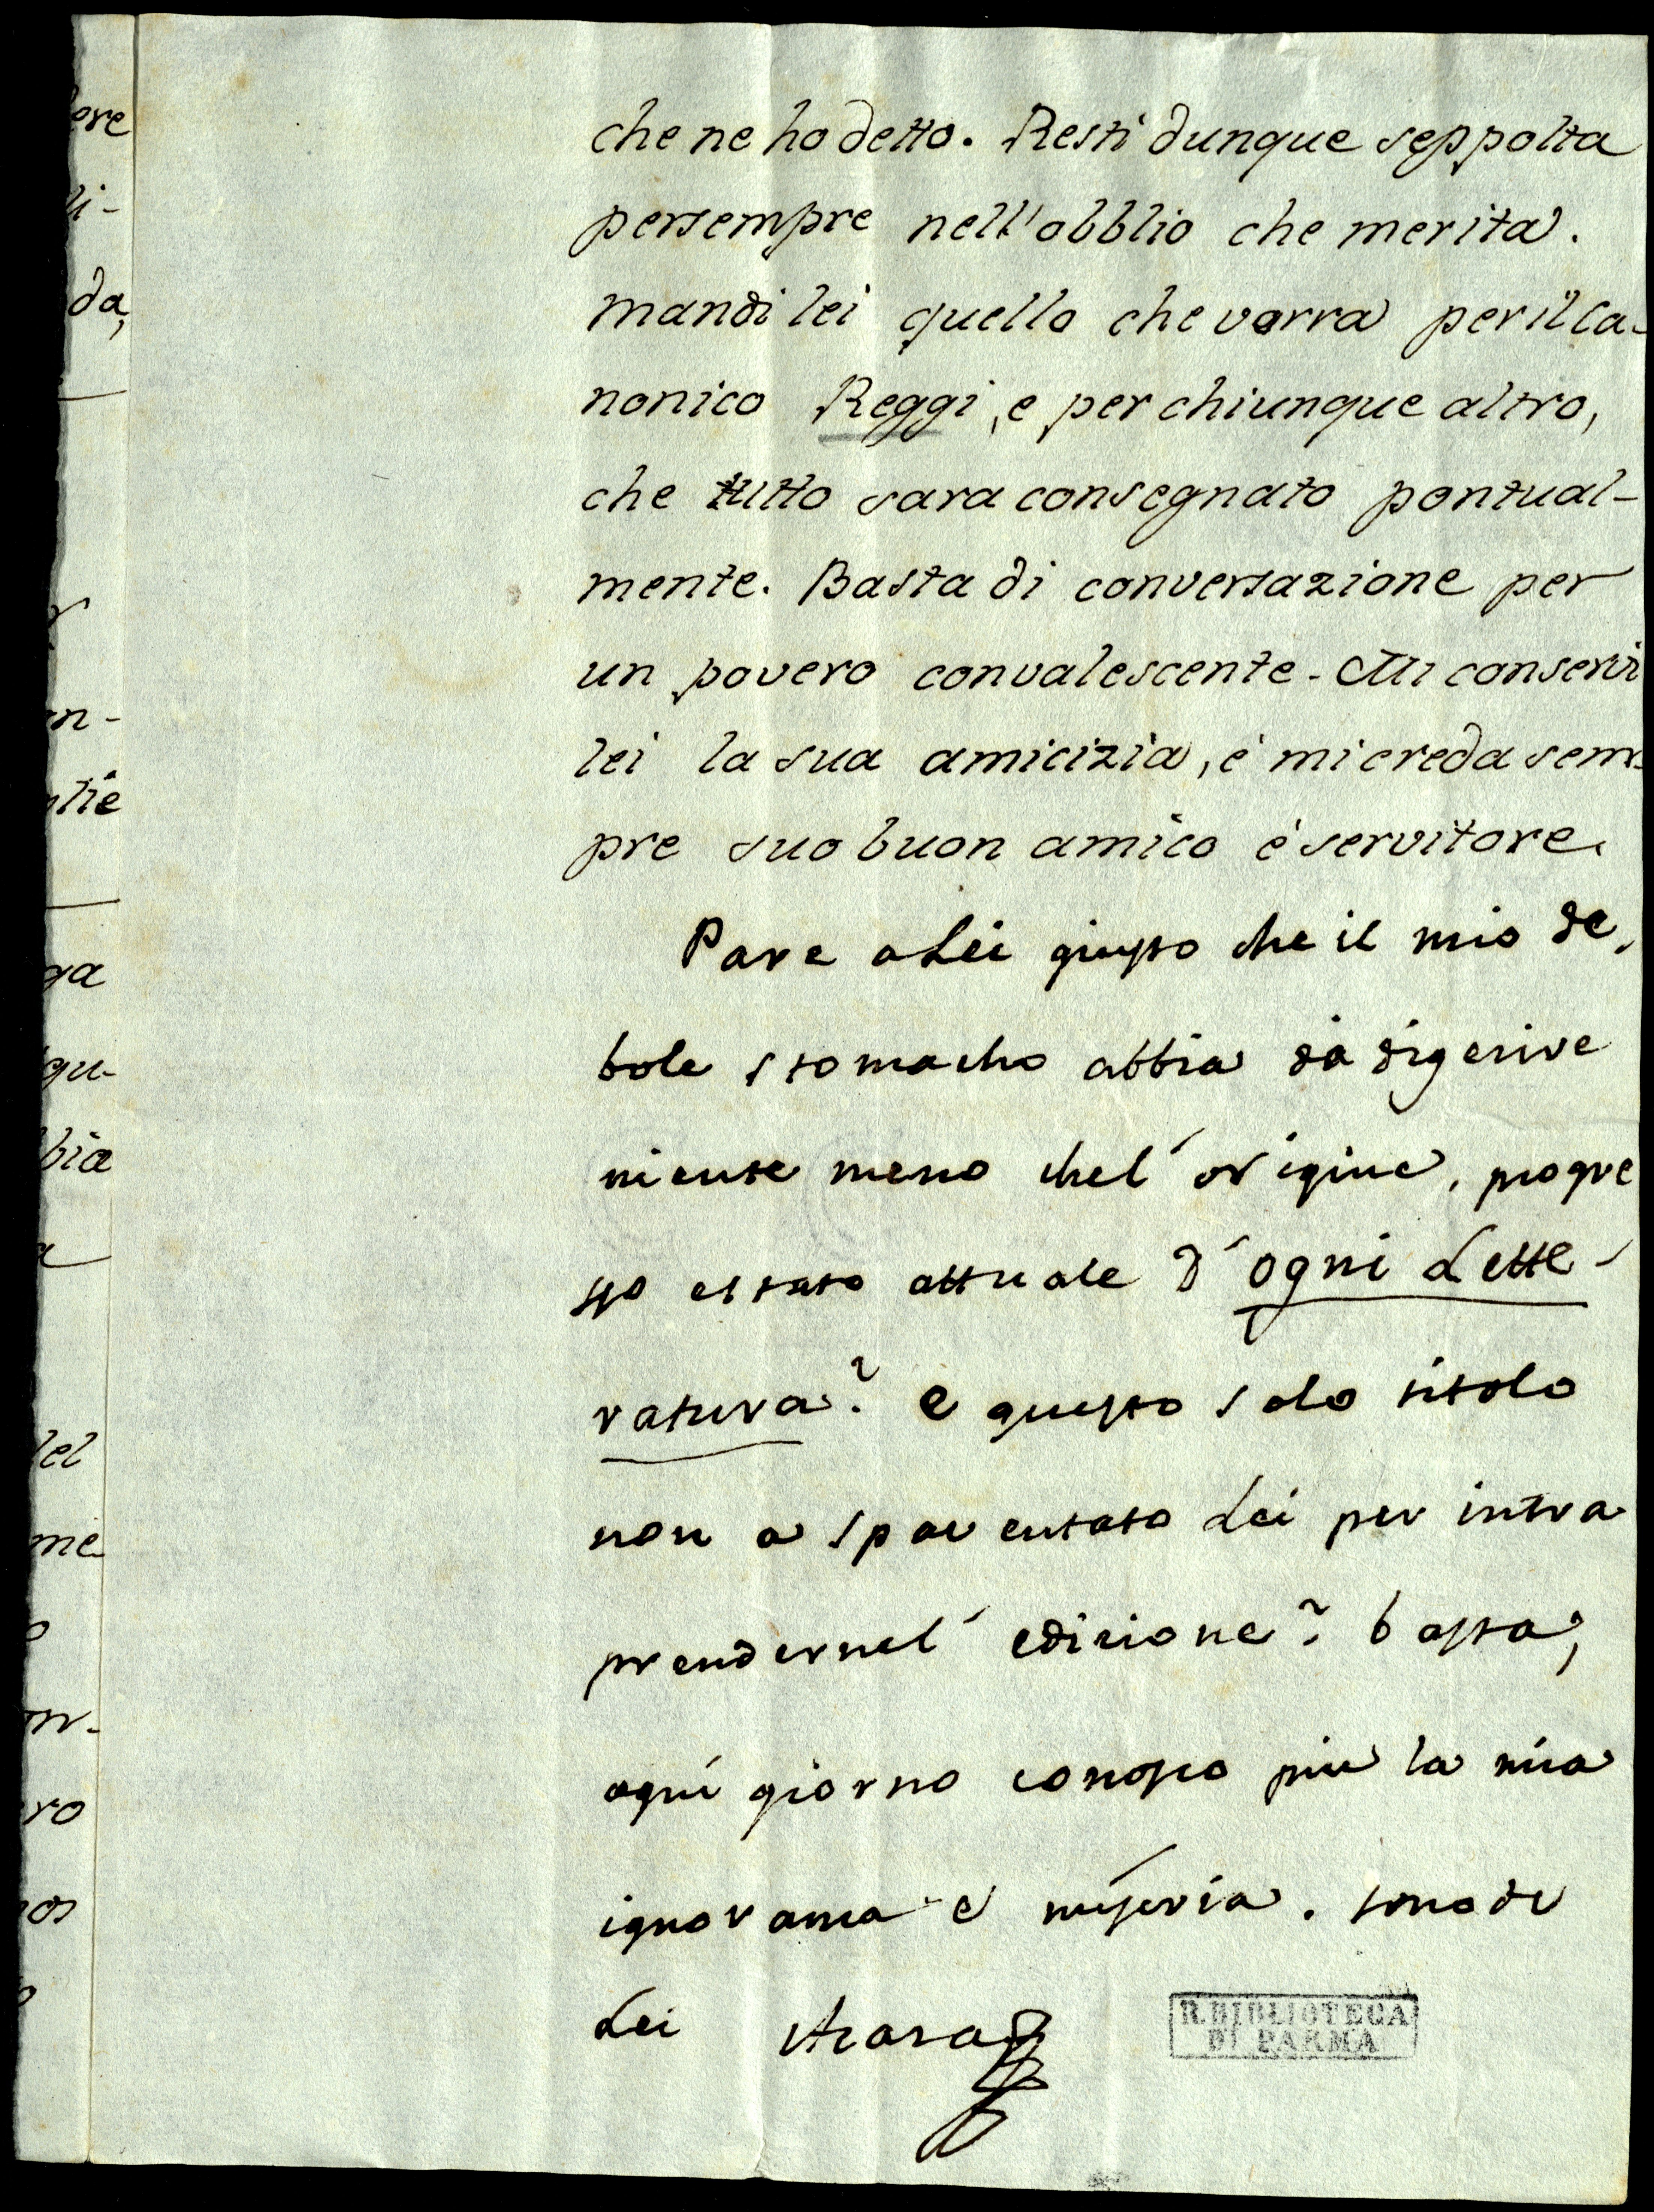 che ne ho detto. Resti dunque seppolta
persempre nell'obblio che merita.
mandi lei quello che vorra per il Ca-
nonico Reggi, e per chiunque altro,
che tutto sara consegnato pontual-
mente. Basta di conversazione per
un povero convalescente. Mi conservi
lei la sua amicizia, è mi creda sem-
pre suo buon amico è servitore.
Pare a Lei giusto che il mio de,
bole stomacho abbia da digerire
niente meno chel' origine, progre
sso estato attuale d'ogni Lette-
ratura? e questo solo titolo
non a spaventato Lei per intra
prendernel' edizione? basta,
ogni giorno conosco piu la mia
ignoranza e miseria. sono di
Lei Azara
R. BIBLIOTECA
DI PARMA
ere
li-
da,
n-
ntie
ga
qu-
bia
a
lel
me
o
on-
ro
os